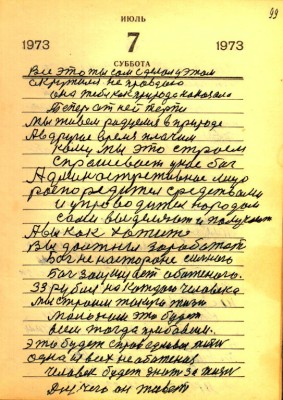 99
ИЮЛЬ
1973 7 1973
СУББОТА
Все это ты сам сделал этом
она тебя как природа наказала
Теперь от ней терпи
Мы живем радуемся в природе
А в другое время плачим
кому мы это строем
спрашевает у нас бог
Административное лицо
распоредится средствами
и упроводится народом
сами выделяют и получают
А вы как хотите
Вы должны заработать
Бог не на стороне сильного
Бог защищает обиженого.
33 рубля на каждого человека
мы строим такую жизнь
мало им это будет
всем тогда прибавим.
Это будет справедливая жизнь
одна из всех не обиженая
человек будет знать за жизнь
для чего он живет